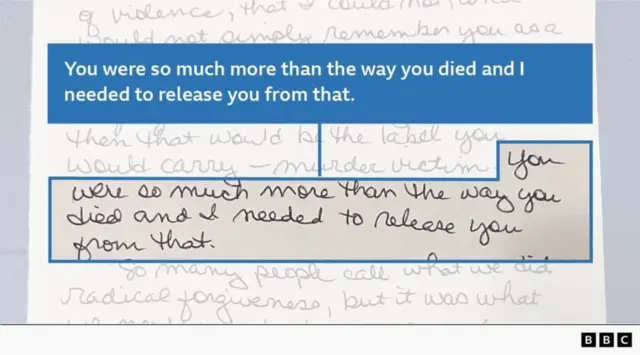 of violence, that I could not,
would not simply remember you as a
You were so much more than the way you died and I
needed to release you from that.
then that would be the label you
would carry – murder victim. You
were so much more than the way you
died and I needed to release you
from that.
So many people call what we did
radical forgiveness, but it was what
BBC